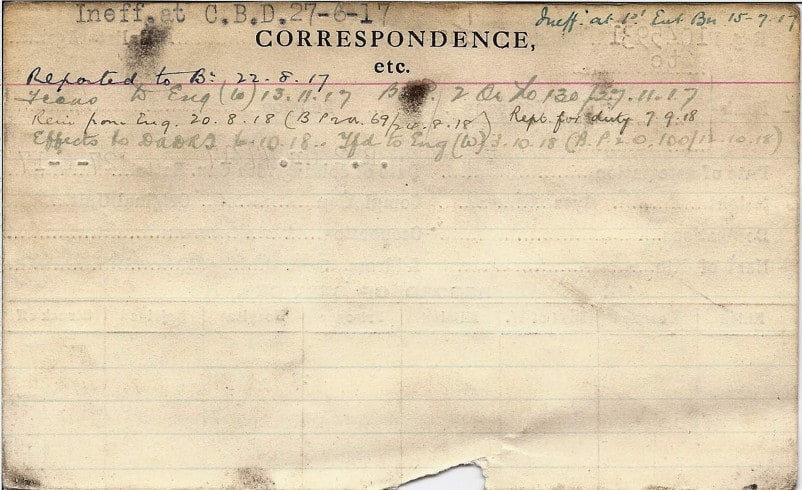 Ineff. at C.B.D. 27-6-17
Ineff. at 1st Ent Bn 15-7-17
CORRESPONDENCE,
etc.
Reported to Bn 22.8.17
Trans to Eng (W) 13.11.17 B. P. 2 Or No 130/27.11.17
from Eng. 20.8.18 (B P 2 o. 69/24.8.18) Rept. for duty 7 9.18
Effects to 6.10.18. Tfd to Eng (W) 3.10.18 (B. P. 2. O, 100/12.10.18)